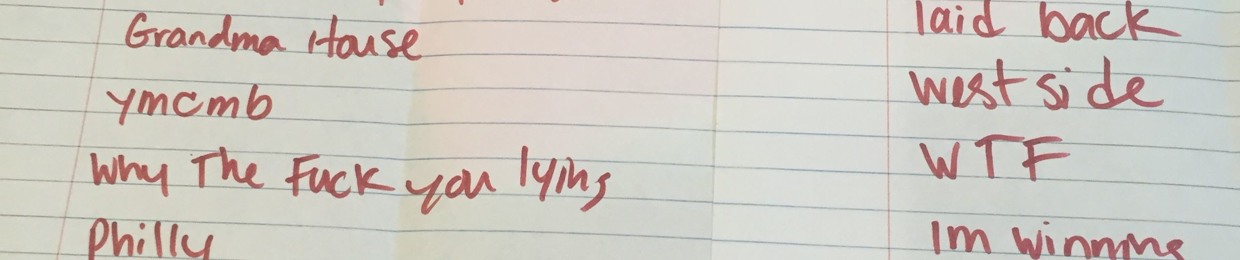 Grandma House
ymcmb
Why The Fuck you lying
Philly
laid back
west side
WTF
Im winning